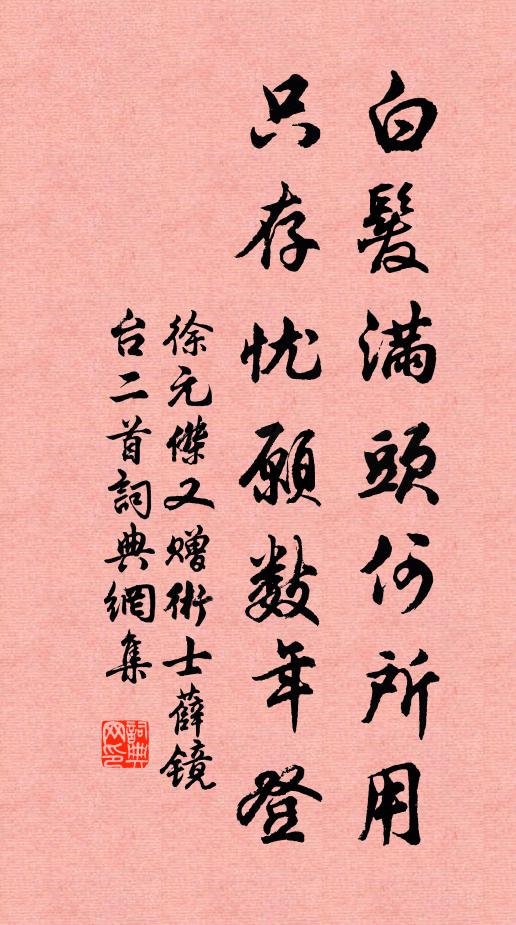 白髮滿頭何所用
只存忧願數年登
徐元傑又贈術士薛鏡
台二首詞典網集
詞典
网印